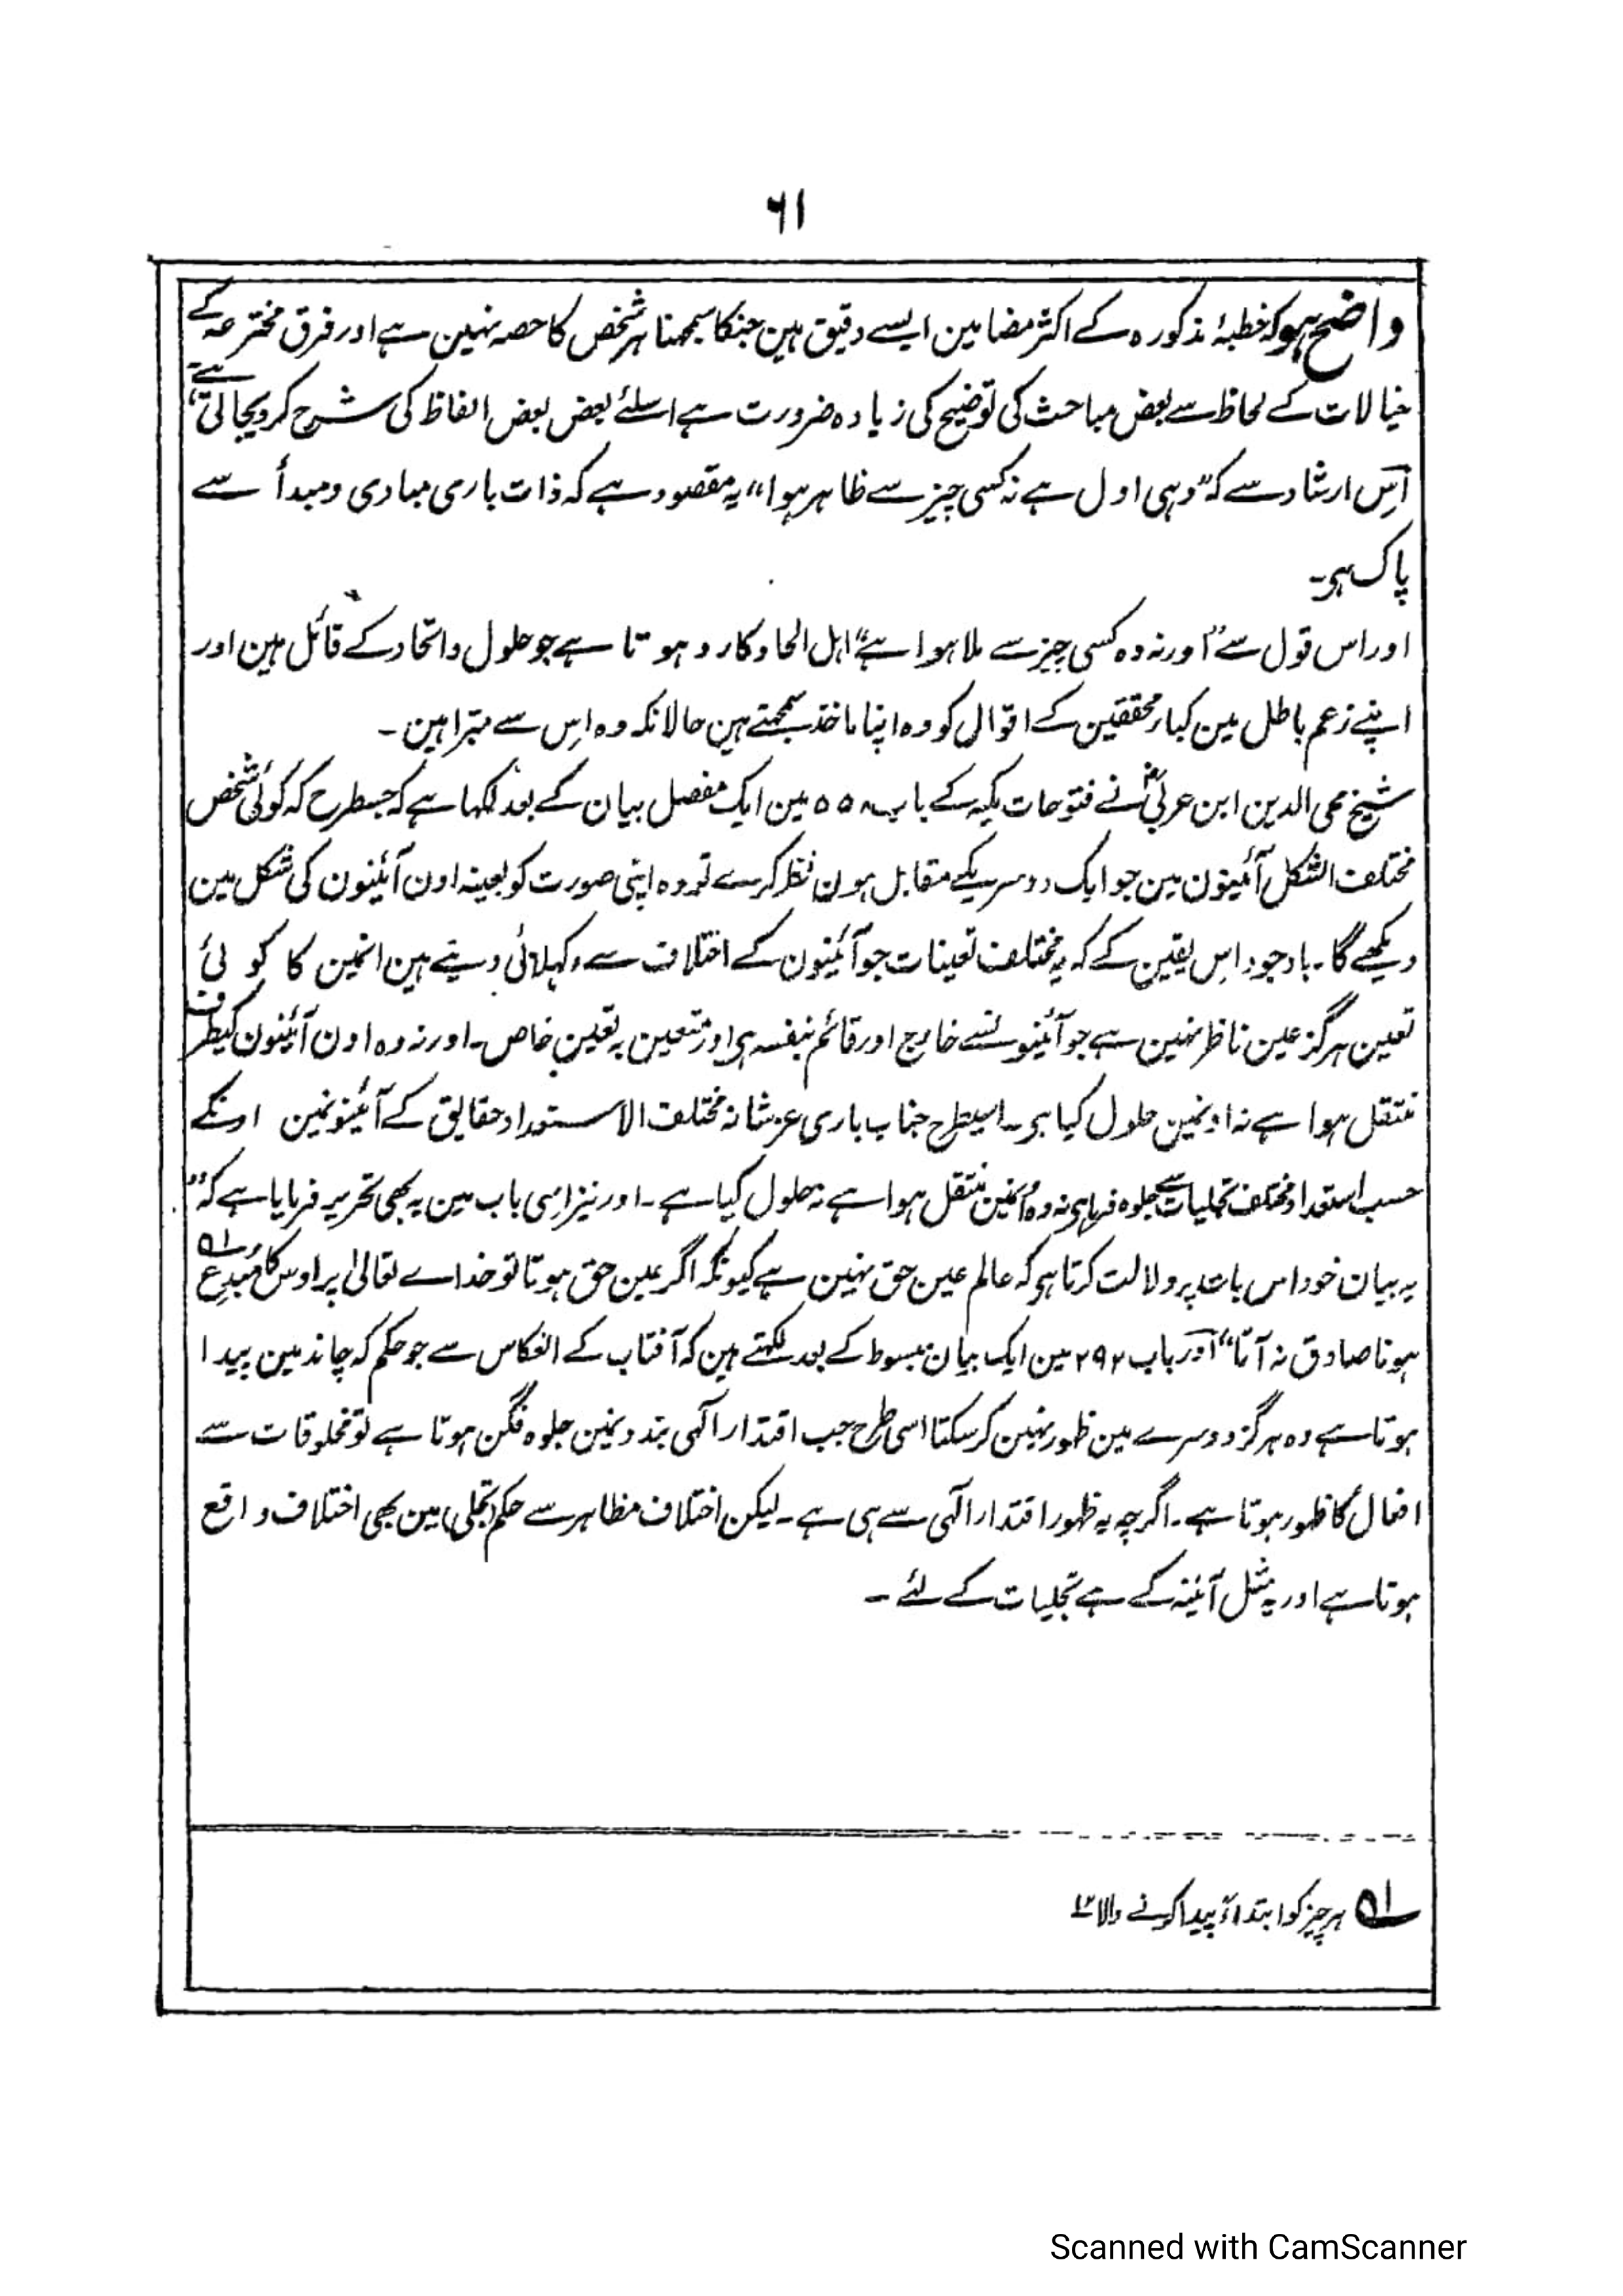 ۶۱
واضح ہو کہ خطبۂ مذکورہ کے اکثر مضامین ایسے دقیق ہین جنکا سمجہنا ہر شخص کا حصہ نہین ہے اور فرق مخترعہ کے
خیالات کے لحاظ سے بعض مباحث کی توضیح کی زیادہ ضرورت ہے اسلئے بعض بعض الفاظ کی شرح کردیجاتی ہے
اِس ارشاد سے کہ "وہی اول ہے نہ کسی چیز سے ظاہر ہوا" یہ مقصود ہے کہ ذات باری مبادی و مبدأ سے
پاک ہی۔
اور اس قول سے "اور نہ وہ کسی چیز سے ملا ہوا ہے" اہل الحاد کا رد ہوتا ہے جو حلول و اتحاد کے قائل ہین اور
اپنے زعم باطل مین کبار محققین کے اقوال کو وہ اپنا ماخذ سمجہتے ہین حالانکہ وہ اِس سے مبّرا ہین۔
شیخ محی الدین ابن عربیؒ نے فتوحات مکیہ کے باب ۵۵۰ مین ایک مفصل بیان کے بعد لکہا ہے کہ جسطرح کہ کوئی شخص
مختلف الشکل آئینون مین جو ایک دوسریکے مقابل ہون نظر کرے تو وہ اپنی صورت کو بعینہ اون آئینون کی شکل مین
دیکھے گا۔ باوجود اِس یقین کے کہ یہ مختلف تعینات جو آئینون کے اختلاف سے دکہلائی دیتے ہین انمین کا کوئی
تعین ہرگز عین ناظر نہین ہے جو آئینونسے خارج اور قائم بنفسہ ہی اور متعین بہ تعین خاص۔ اور نہ وہ اون آئینون کیطرف
منتقل ہوا ہے نہ اونمین حلول کیا ہی۔ اسیطرح جناب باری عز شانہ مختلف الاستعداد حقایق کے آئینونمین اونکے
حسب استعداد مختلف تجلیات سے جلوہ فرما ہی نہ وہ اُنمین منتقل ہوا ہے نہ حلول کیا ہے۔ اور نیز اِسی باب مین یہ بھی تحریر فرمایا ہے کہ "
یہ بیان خود اس بات پر دلالت کرتا ہی کہ عالم عین حق نہین ہے کیونکہ اگر عین حق ہوتا تو خداے تعالیٰ پر اوس کا مُبدِع ؎۱
ہونا صادق نہ آتا" اور باب ۲۹۲ مین ایک بیان مبسوط کے بعد لکہتے ہین کہ آفتاب کے انعکاس سے جو حکم کہ چاند مین پیدا
ہوتا ہے وہ ہرگز دوسرے مین ظہور نہین کرسکتا اسی طرح جب اقتدار الٰہی بندونمین جلوہ فگن ہوتا ہے تو مخلوقات سے
افعال کا ظہور ہوتا ہے۔ اگرچہ یہ ظہور اقتدار الٰہی سے ہی ہے۔ لیکن اختلاف مظاہر سے حکم (تجلی) مین بھی اختلاف واقع
ہوتا ہے اور یہ مثل آئینہ کے ہے تجلیات کے لئے۔
؎۱ ہر چیز کو ابتداءً پیدا کرنے والا ۱۲
Scanned with CamScanner